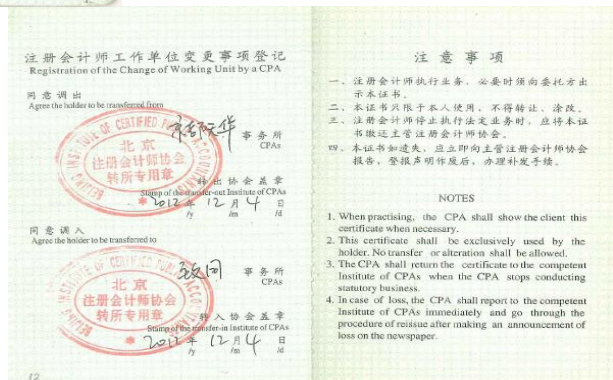 注册会计师工作单位变更事项登记
Registration of the Change of Working Unit by a CPA
同意调出
Agree the holder to be transferred from
京都天华 事务所
CPAs
BEIJING INSTITUTE OF CERTIFIED PUBLIC ACCOUNTANTS
北京
注册会计师协会
转所专用章
转出协会盖章
Stamp of the transfer-out Institute of CPAs
2012 年 12 月 4 日
/y /m /d
同意调入
Agree the holder to be transferred to
致同 事务所
CPAs
BEIJING INSTITUTE OF CERTIFIED PUBLIC ACCOUNTANTS
北京
注册会计师协会
转所专用章
转入协会盖章
Stamp of the transfer-in Institute of CPAs
2012 年 12 月 4 日
/y /m /d
12
注意事项
一、注册会计师执行业务，必要时须向委托方出
示本证书。
二、本证书只限于本人使用，不得转让、涂改。
三、注册会计师停止执行法定业务时，应将本证
书缴还主管注册会计师协会。
四、本证书如遗失，应立即向主管注册会计师协会
报告，登报声明作废后，办理补发手续。
NOTES
1. When practising, the CPA shall show the client this
certificate when necessary.
2. This certificate shall be exclusively used by the
holder. No transfer or alteration shall be allowed.
3. The CPA shall return the certificate to the competent
Institute of CPAs when the CPA stops conducting
statutory business.
4. In case of loss, the CPA shall report to the competent
Institute of CPAs immediately and go through the
procedure of reissue after making an announcement of
loss on the newspaper.